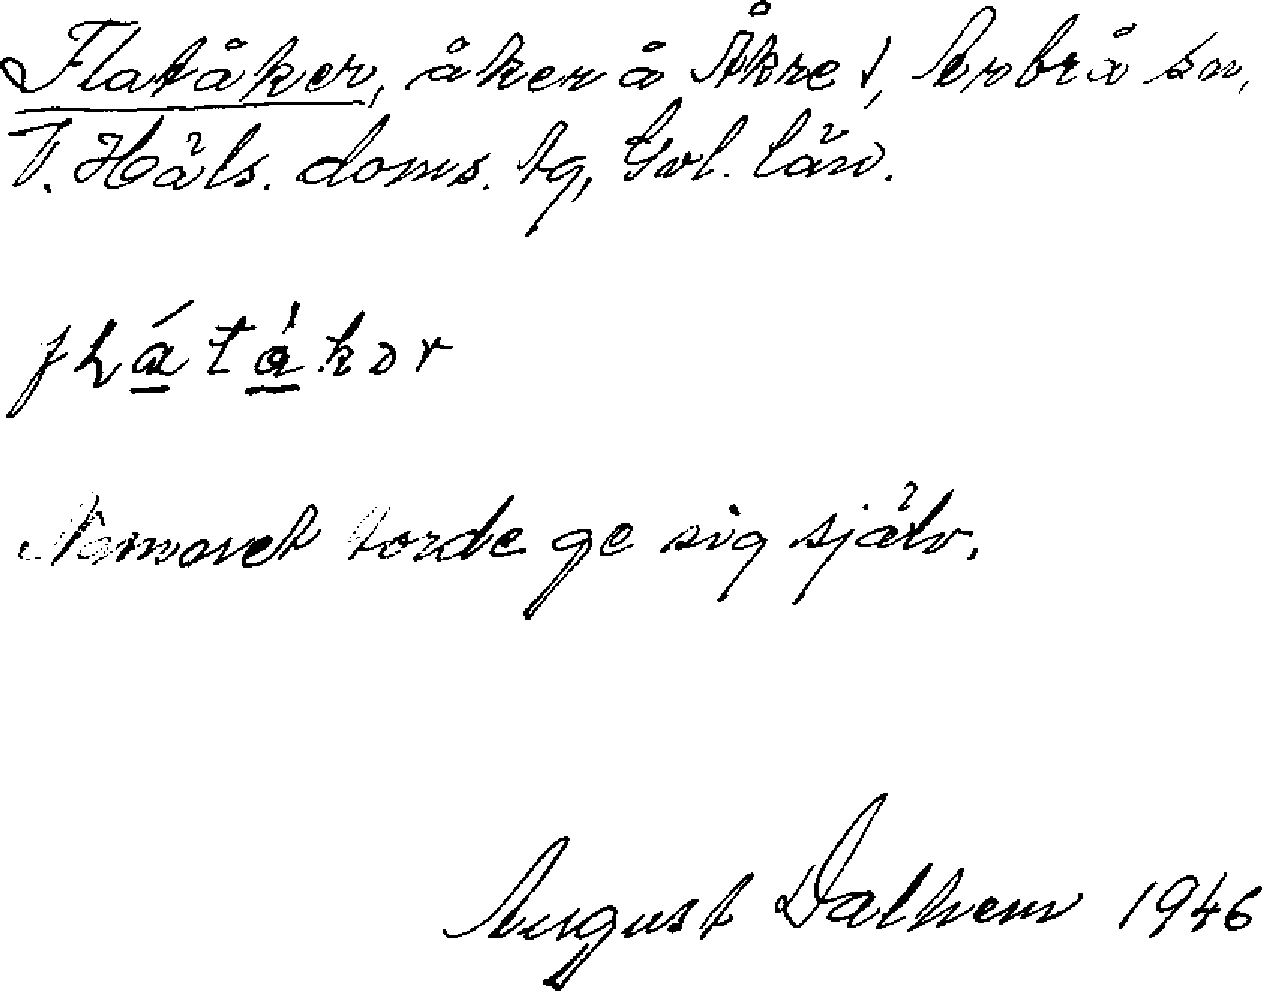 Flatåker, åker å Åkre 1, Arbrå sn,
V. Häls. doms. tg, Gvl. län.
flátákər
Namnet torde ge sig själv.
August Dalhem 1946